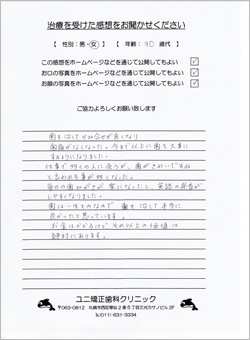 治療を受けた感想をお聞かせください
【 性別：男・女 】 【 年齢：30 歳代 】
この感想をホームページなどを通じて公開してもよい ✓
お口の写真をホームページなどを通じて公開してもよい ✓
お顔の写真をホームページなどを通じて公開してもよい ✓
ご協力よろしくお願い致します
歯を治してかみ合せが良くなり
頭痛がなくなった。今まで以上に歯を大事に
するようになりました。
仕事で多くの人に会うが、歯がきれいですね
と言われる事が多くなった。
毎日の歯みがきが楽になったし、英語の発音が
しやすくなりました。
歯は一生ものなので 歯を治して本当に
良かったと思っています。
お金はかかるけど それ以上の価値は
絶対にあります。
ユニ矯正歯科クリニック
〒063-0812 札幌市西区琴似2条5丁目三光カサノビル2F
Tel.(011)-631-3334